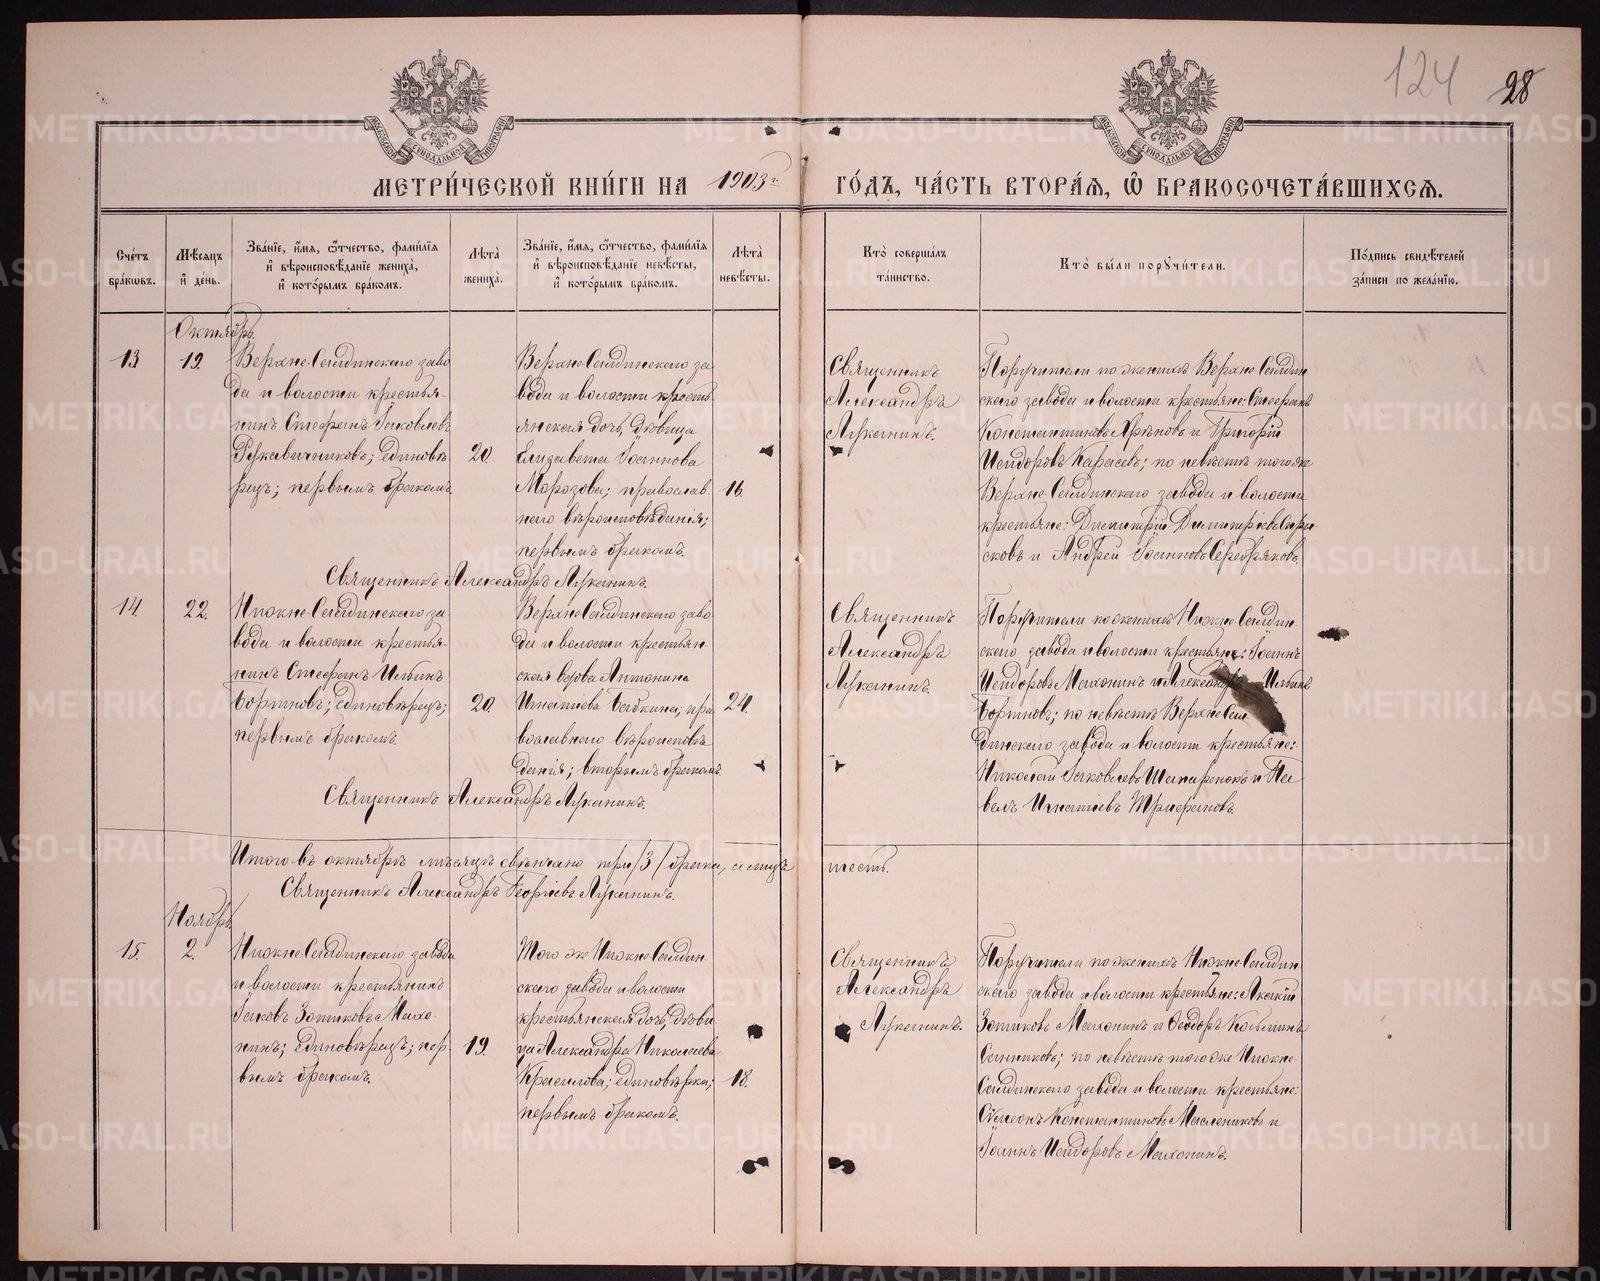 124 28
МЕТРИ́ЧЕСКОЙ КНИ́ГИ НА 1903й ГО́ДЪ, ЧА́СТЬ ВТОРА́Я, Ѽ БРАКОСОЧЕТА́ВШИХСѦ.
Сче́тъ бра́кѡвъ.
Мѣ́сѧцъ и҆ де́нь.
Зва́нїе, и҆́мѧ, ѻ҆́тчество, фами́лїѧ и҆ вѣроисповѣ́данїе жениха̀, и҆ кото́рымъ бра́комъ.
Лѣ́та жениха̀.
Зва́нїе, и҆́мѧ, ѻ҆́тчество, фами́лїѧ и҆ вѣроисповѣ́данїе невѣ́сты, и҆ кото́рымъ бра́комъ.
Лѣ́та невѣ́сты.
Кто̀ соверша́лъ та́инство.
Кто̀ бы́ли порꙋчи́тели.
По́дпись свидѣ́телей за́писи по жела́нїю.
Октябрь.
13 19.
Верхне-Салдинскаго заво
да и волости крестья-
нинъ Стефанъ Іаковлевъ
Рукавичниковъ; единовѣ
рецъ; первымъ бракомъ.
20
Верхне-Салдинскаго за
вода и волости кресть
янская дочь, дѣвица
Елизавета Іоаннова
Морозова; православ-
наго вѣроисповѣданія;
первымъ бракомъ.
16.
Священникъ
Александръ
Луканинъ.
Поручители по женихѣ Верхне-Салдин
скаго завода и волости крестьяне: Стефанъ
Константиновъ и Григорій
Исидоровъ Карасевъ; по невѣстѣ того же
Верхне-Салдинскаго завода и волости
крестьяне: Димитрій Димитріевъ
сковъ и Андрей Іоанновъ Серебряковъ.
Священникъ Александръ Луканинъ.
14. 22.
Нижне-Салдинскаго за-
вода и волости крестья-
нинъ Стефанъ Ильинъ
Бортновъ; единовѣрецъ;
первымъ бракомъ.
20
Верхне-Салдинскаго заво
да и волости крестьян
ская вдова Антонина
Игнатіева Бабкина; пра
вославнаго вѣроисповѣ
данія; вторымъ бракомъ.
24.
Священникъ
Александръ
Луканинъ.
Поручители по женихѣ Нижне-Салдин
скаго завода и волости крестьяне: Іоаннъ
Исидоровъ Махонинъ и Александръ Ильинъ
Бортновъ; по невѣстѣ Верхне-Сал
динскаго завода и волости крестьяне:
Николай Іаковлевъ и Па
велъ Игнатіевъ Трифановъ.
Священникъ Александръ Луканинъ.
Итого въ октябрѣ мѣсяцѣ свѣнчано три /3/ брака, а лицъ шесть.
Священникъ Александръ Георгіевъ Луканинъ.
Ноябрь
15. 2.
Нижне-Салдинскаго завода
и волости крестьянинъ
Іаковъ Зотиковъ Махо-
нинъ; единовѣрецъ; пер-
вымъ бракомъ.
19.
Того же Нижне-Салдин
скаго завода и волости
крестьянская дочь, дѣви-
ца Александра Николаева
Красилова; единовѣрка;
первымъ бракомъ.
18.
Священникъ
Александръ
Луканинъ.
Поручители по женихѣ Нижне-Салдин
скаго завода и волости крестьяне: Акакій
Зотиковъ Махонинъ и Феодоръ Козьминъ
Санниковъ; по невѣстѣ того же Нижне-
Салдинскаго завода и волости крестьяне:
Симеонъ Константиновъ Масленниковъ и
Іоаннъ Исидоровъ Махонинъ.
METRIKI.GASO-URAL.RU